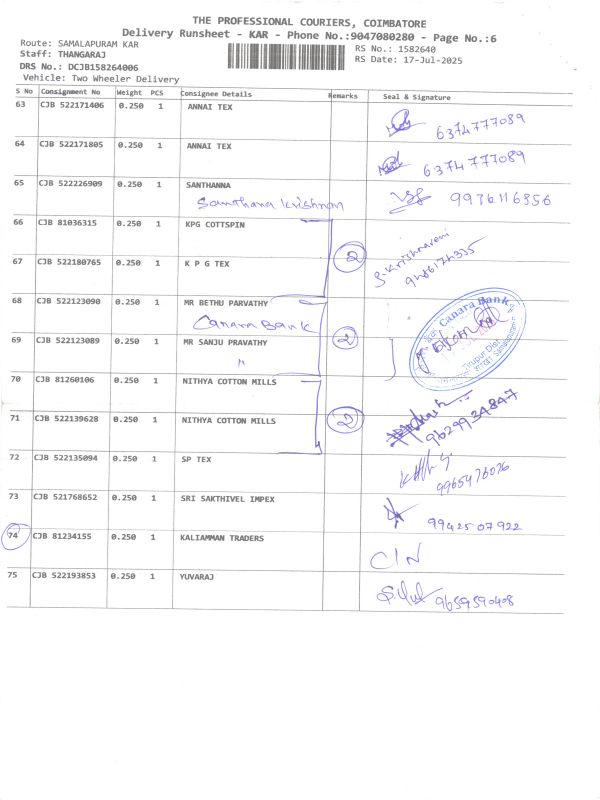 THE PROFESSIONAL COURIERS, COIMBATORE
Delivery Runsheet - KAR - Phone No.:9047080280 - Page No.:6
Route: SAMALAPURAM KAR RS No.: 1582640
Staff: THANGARAJ RS Date: 17-Jul-2025
DRS No.: DCJB158264006
Vehicle: Two Wheeler Delivery
S No Consignment No Weight PCS Consignee Details Remarks Seal & Signature
63 CJB 522171406 0.250 1 ANNAI TEX
6374777089
64 CJB 522171805 0.250 1 ANNAI TEX
6374777089
65 CJB 522226909 0.250 1 SANTHANNA
Santhana Krishnan 9976116356
66 CJB 81036315 0.250 1 KPG COTTSPIN
2 S. Krishnaveni
67 CJB 522180765 0.250 1 K P G TEX
68 CJB 522123090 0.250 1 MR BETHU PARVATHY
Canara Bank 2 Canara Bank
69 CJB 522123089 0.250 1 MR SANJU PRAVATHY
〃 Tirupur Dist
70 CJB 81260106 0.250 1 NITHYA COTTON MILLS
71 CJB 522139628 0.250 1 NITHYA COTTON MILLS 2
9629934847
72 CJB 522135094 0.250 1 SP TEX
9965476076
73 CJB 521768652 0.250 1 SRI SAKTHIVEL IMPEX
9942507922
74 CJB 81234155 0.250 1 KALIAMMAN TRADERS
CIN
75 CJB 522193853 0.250 1 YUVARAJ
9659590408